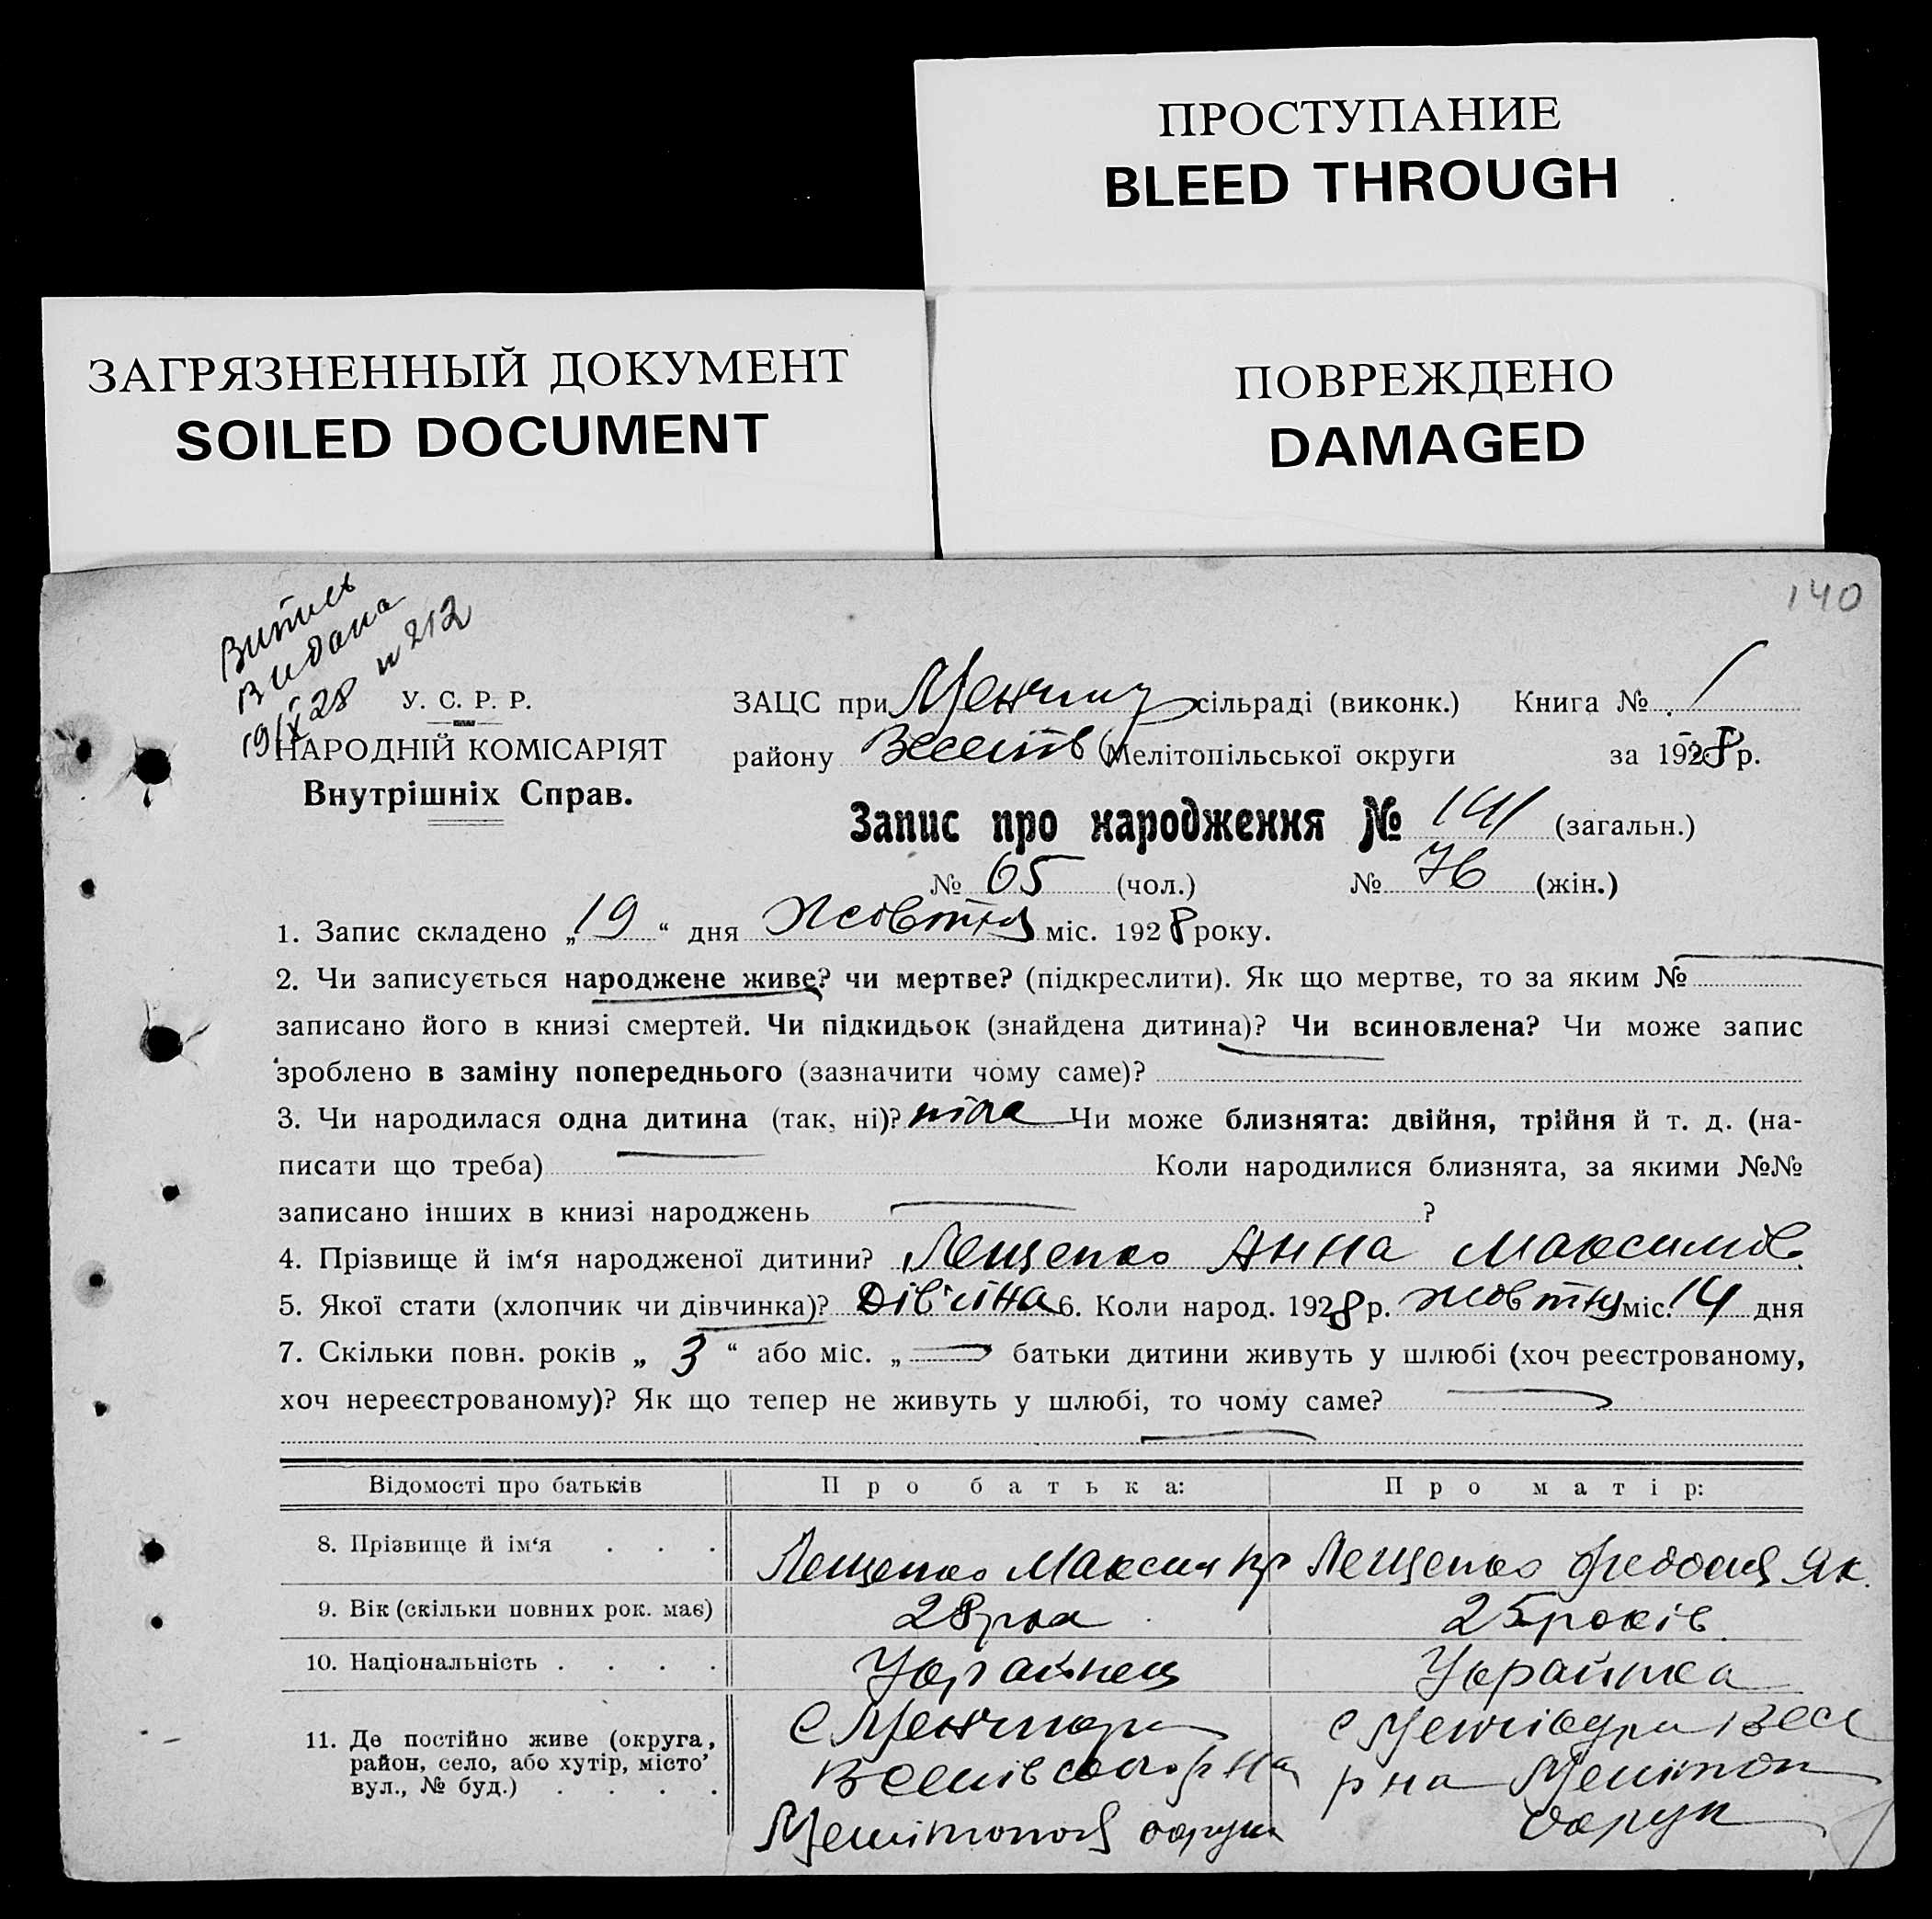 ПРОСТУПАНИЕ
BLEED THROUGH
ЗАГРЯЗНЕННЫЙ ДОКУМЕНТ
SOILED DOCUMENT
ПОВРЕЖДЕНО
DAMAGED
140
Витись
Видана
19/X 28 № 212
У. С. Р. Р.
НАРОДНІЙ КОМІСАРІЯТ
Внутрішніх Справ.
ЗАЦС при сільраді (виконк.) Книга № 1
району Веселів Мелітопільської округи за 1928 р.
Запис про народження № 141 (загальн.)
№ 65 (чол.) № 76 (жін.)
1. Запис складено „ 19 “ дня Жовтня міс. 1928 року.
2. Чи записується народжене живе? чи мертве? (підкреслити). Як що мертве, то за яким №
записано його в книзі смертей. Чи підкидьок (знайдена дитина)? Чи всиновлена? Чи може запис
зроблено в заміну попереднього (зазначити чому саме)?
3. Чи народилася одна дитина (так, ні)? Чи може близнята: двійня, трійня й т. д. (на-
писати що треба) Коли народилися близнята, за якими №№
записано інших в книзі народжень ?
4. Прізвище й ім‘я народженої дитини? Лещенко Анна Максимов.
5. Якої стати (хлопчик чи дівчинка)? 6. Коли народ. 1928 р. жовтня міс. 14 дня
7. Скільки повн. років „ 3 “ або міс. „ — батьки дитини живуть у шлюбі (хоч реєстрованому,
хоч нереєстрованому)? Як що тепер не живуть у шлюбі, то чому саме?
Відомості про батьків Про батька: Про матір:
8. Прізвище й ім‘я . . . Лещенко Максим Лещенко Федосія Як.
9. Вік (скільки повних рок. має) 28 25 років
10. Національність . . . . Українец Українка
11. Де постійно живе (округа,
район, село, або хутір, місто’
вул., № буд.) . . . .
С Менчикури
Веселівського р на
Мелітопол округи
с Менчікури Весел
р на Мелітоп
округи